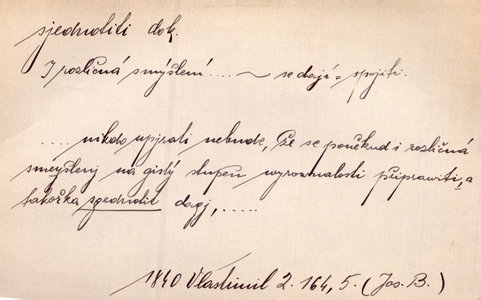 sjednotiti dok.
I rozličná smýšlení .... ~ se dají spojiti.
.... nikdo upjrati nebude, že se poněkud i rozličná
smeysleny na gistý stupen wyrownalosti připrawiti, a
takořka sgednotit dagj, .....
1840 Vlastimil 2. 164, 5. (Jos. B.)